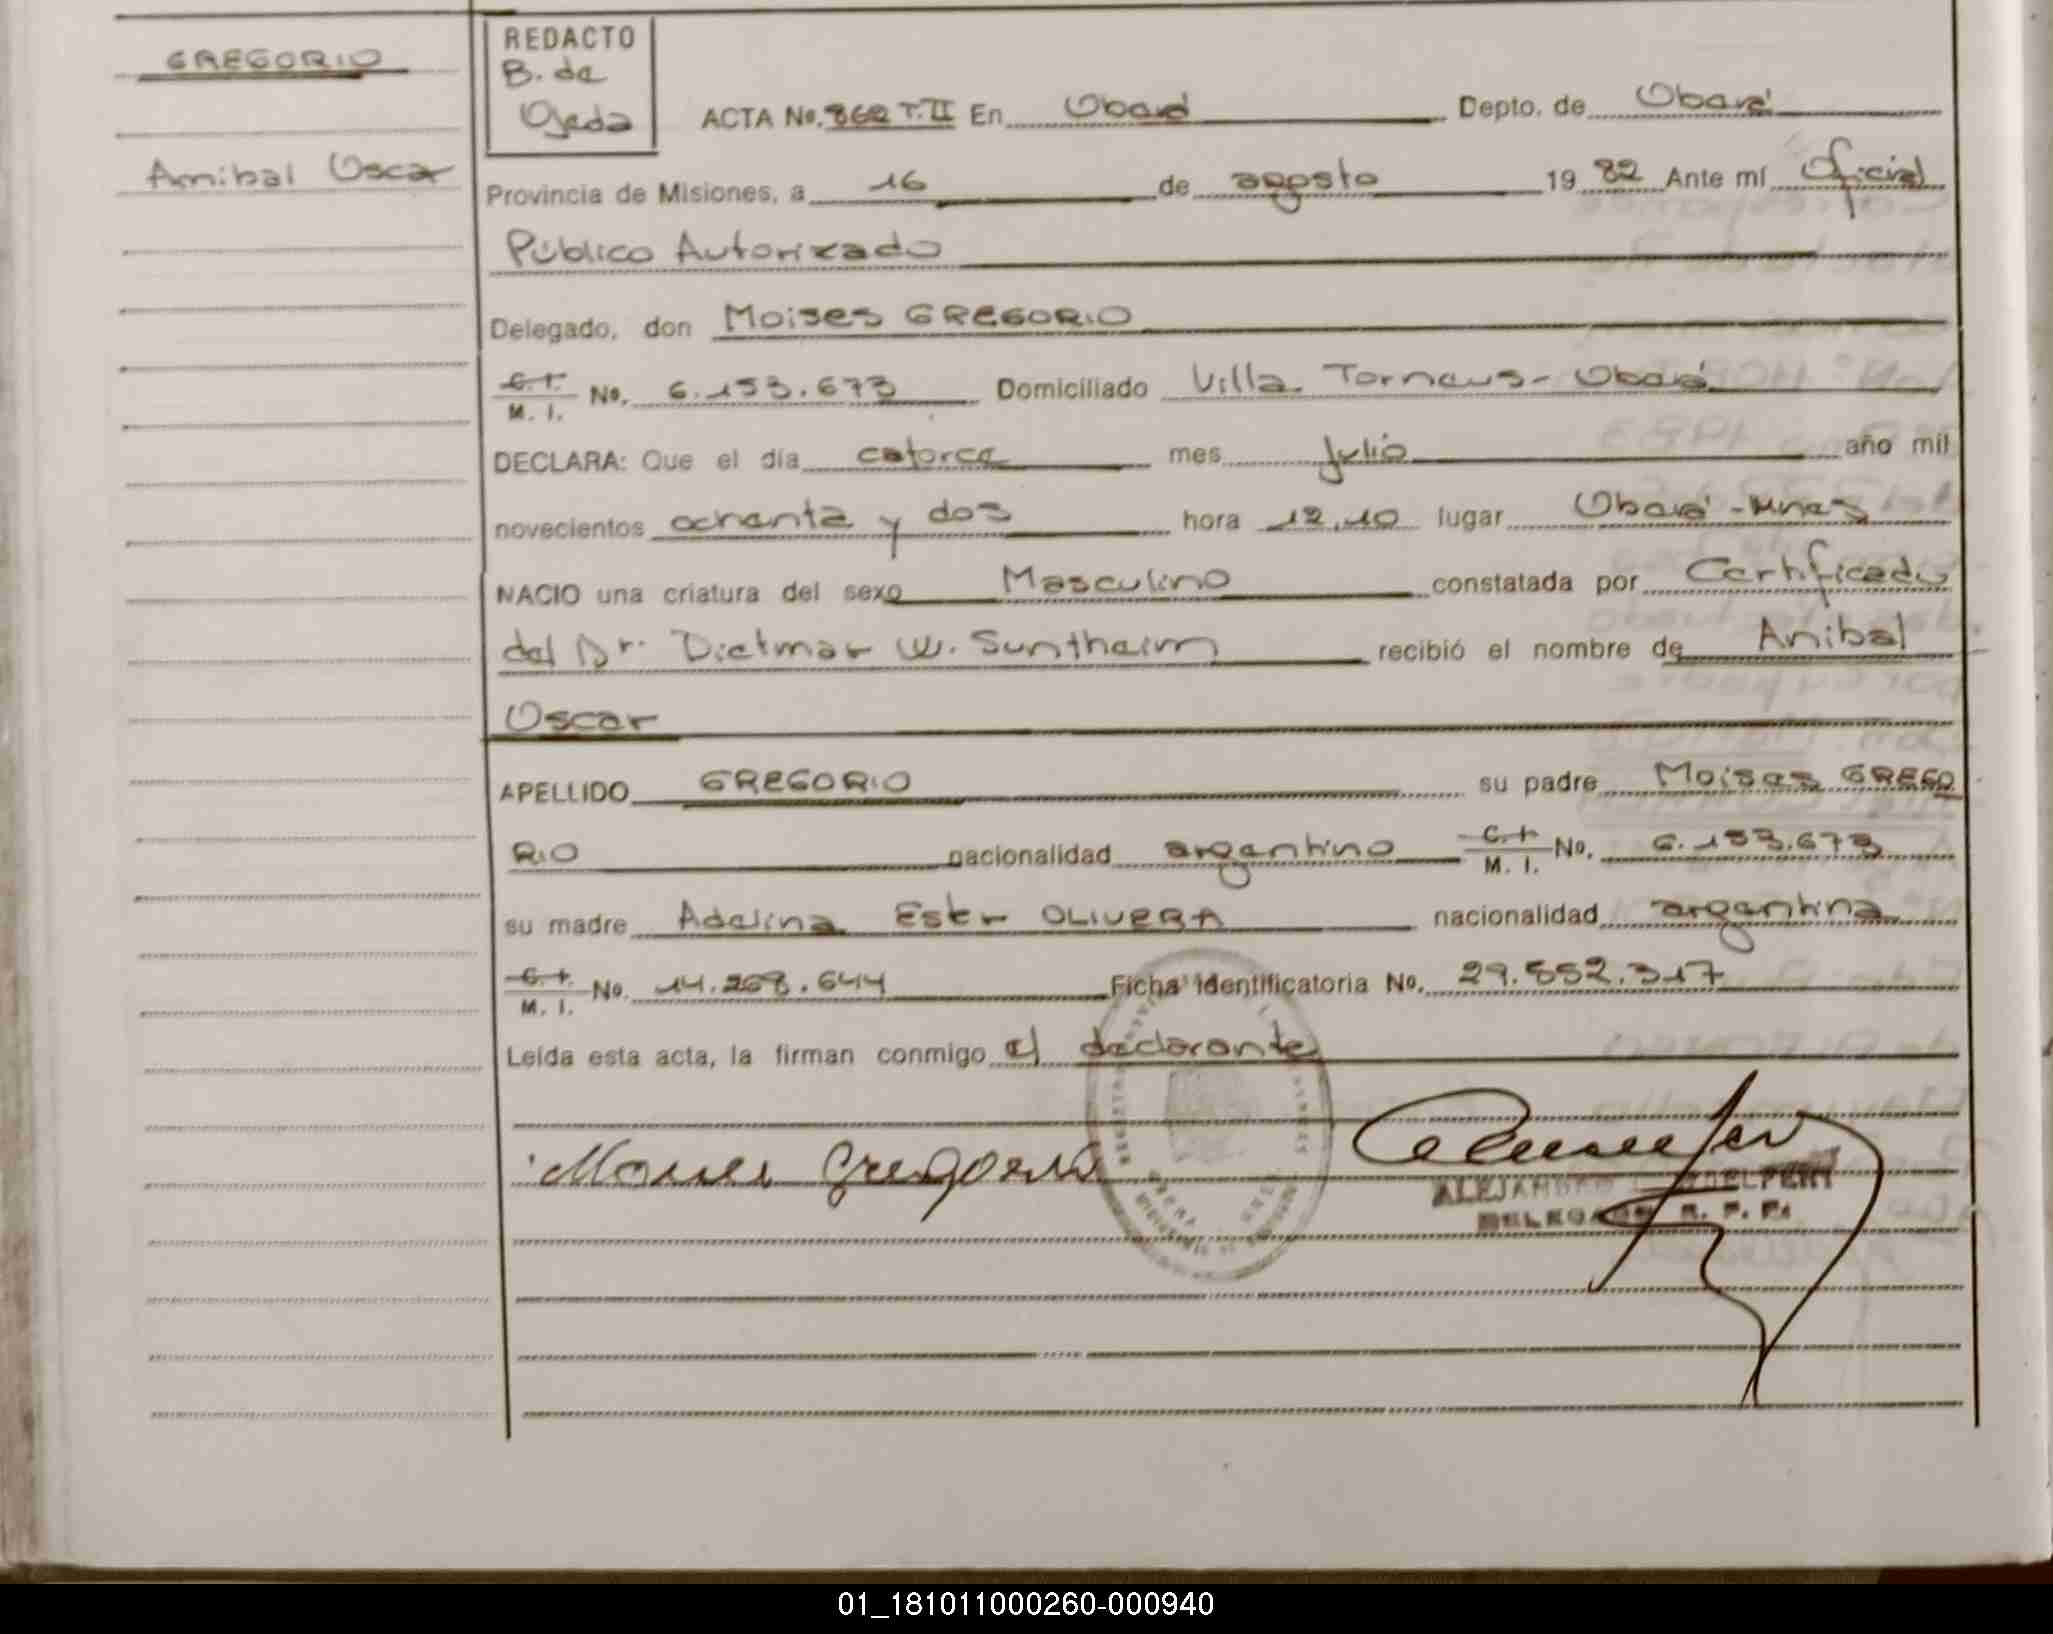 GREGORIO
Anibal Oscar
REDACTO
B. de
Ojeda
ACTA No. 862 T.II En Oberá Depto. de Oberá
Provincia de Misiones, a 16 de agosto 1982 Ante mí Oficial
Público Autorizado
Delegado, don Moises GREGORIO
C.I. M. I. No. 6.153.673 Domiciliado Villa Torneus - Oberá
DECLARA: Que el día catorce mes julio año mil
novecientos ochenta y dos hora 12.10 lugar Oberá - Mnes
NACIO una criatura del sexo Masculino constatada por Certificado
del Dr. Dietmar W. Suntheim recibió el nombre de Anibal
Oscar
APELLIDO GREGORIO su padre Moises GREGO
RIO nacionalidad argentino C.I. M. I. No. 6.153.673
su madre Adelina Ester OLIVERA nacionalidad argentina
C.I. M. I. No. 14.268.644 Ficha identificatoria No. 29.552.317
Leída esta acta, la firman conmigo el declarante
Moises Gregorio
ALEJANDRO
DELEGADO R. P. P.
01_181011000260-000940